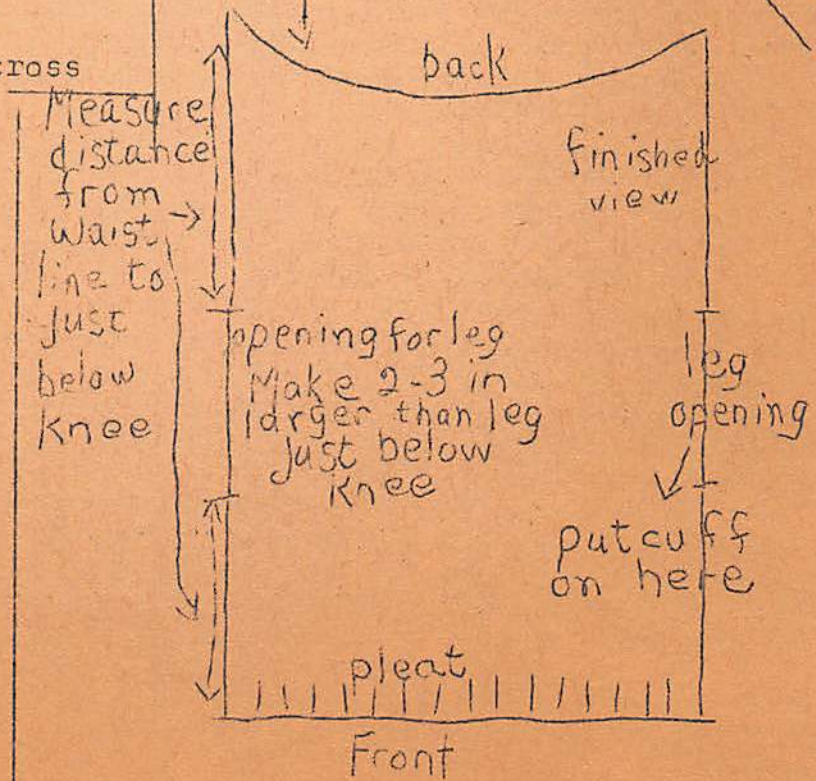 cross
back
Measure
distance
from
waist
line to
just
below
knee
finished
view
opening for leg
Make 2-3 in
larger than leg
just below
knee
leg
opening
put cuff
on here
pleat
Front